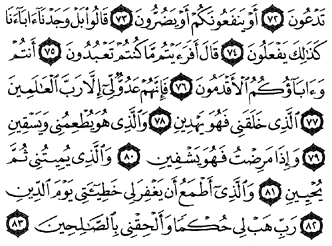 تَدْعُونَ ٧٢ أَوْ يَنفَعُونَكُمْ أَوْ يَضُرُّونَ ٧٣ قَالُوا۟ بَلْ وَجَدْنَآ ءَابَآءَنَا
كَذَٰلِكَ يَفْعَلُونَ ٧٤ قَالَ أَفَرَءَيْتُم مَّا كُنتُمْ تَعْبُدُونَ ٧٥ أَنتُمْ
وَءَابَآؤُكُمُ ٱلْأَقْدَمُونَ ٧٦ فَإِنَّهُمْ عَدُوٌّ لِّىٓ إِلَّا رَبَّ ٱلْعَٰلَمِينَ
٧٧ ٱلَّذِى خَلَقَنِى فَهُوَ يَهْدِينِ ٧٨ وَٱلَّذِى هُوَ يُطْعِمُنِى وَيَسْقِينِ
٧٩ وَإِذَا مَرِضْتُ فَهُوَ يَشْفِينِ ٨٠ وَٱلَّذِى يُمِيتُنِى ثُمَّ
يُحْيِينِ ٨١ وَٱلَّذِىٓ أَطْمَعُ أَن يَغْفِرَ لِى خَطِيٓـَٔتِى يَوْمَ ٱلدِّينِ
٨٢ رَبِّ هَبْ لِى حُكْمًا وَأَلْحِقْنِى بِٱلصَّٰلِحِينَ ٨٣